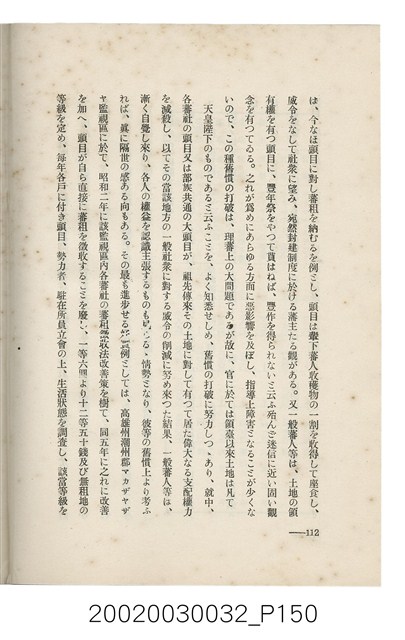 は、今なほ頭目に對し蕃租を納むるを例とし、頭目は轂下蕃人收穫物の一割を收得して座食し、
威令をなして社衆に望み、宛然封建制度に於ける藩主たる觀がある。又一般蕃人等は、土地の領
有權を有つ頭目に、豐年祭をやつて貰はねば、豐作を得られないと云ふ殆んど迷信に近い固い觀
念を有つてゐる。之れが爲めにあらゆる方面に惡影響を及ぼし、指導上障害となることが少くな
いので、この種舊慣の打破は、理蕃上の大問題であるが故に、官に於ては領臺以來土地は凡て
天皇陛下のものであると云ふことを、よく知悉せしめ、舊慣の打破に努力しつゝあり、就中、
各蕃社の頭目又は部族共通の大頭目が、祖先傳來その土地に對して有つて居た偉大なる支配權力
を減殺し、以てその當該地方の一般社衆に對する威令の削減に努め來つた結果、一般蕃人等は、
漸く自覺し來り、各人の權益を認識主張するものも
情勢となり、彼等の舊慣上より考ふ
れば、眞に隔世の感ある向もある。その最も進步せる
例としては、高雄州潮州郡
カザヤザ
ヤ監視區に於て、昭和二年に該監視區內各蕃社の蕃租
取法改善策を樹て、同五年に之れに改善
を加へ、頭目が自ら直接に蕃租を徵收することを廢し、一等六圓より十二等五十錢及び無租地の
等級を定め、每年各戶に付き頭目、勢力者、駐在所員立會の上、生活狀態を調査し、該當等級を
112
20020030032_P150